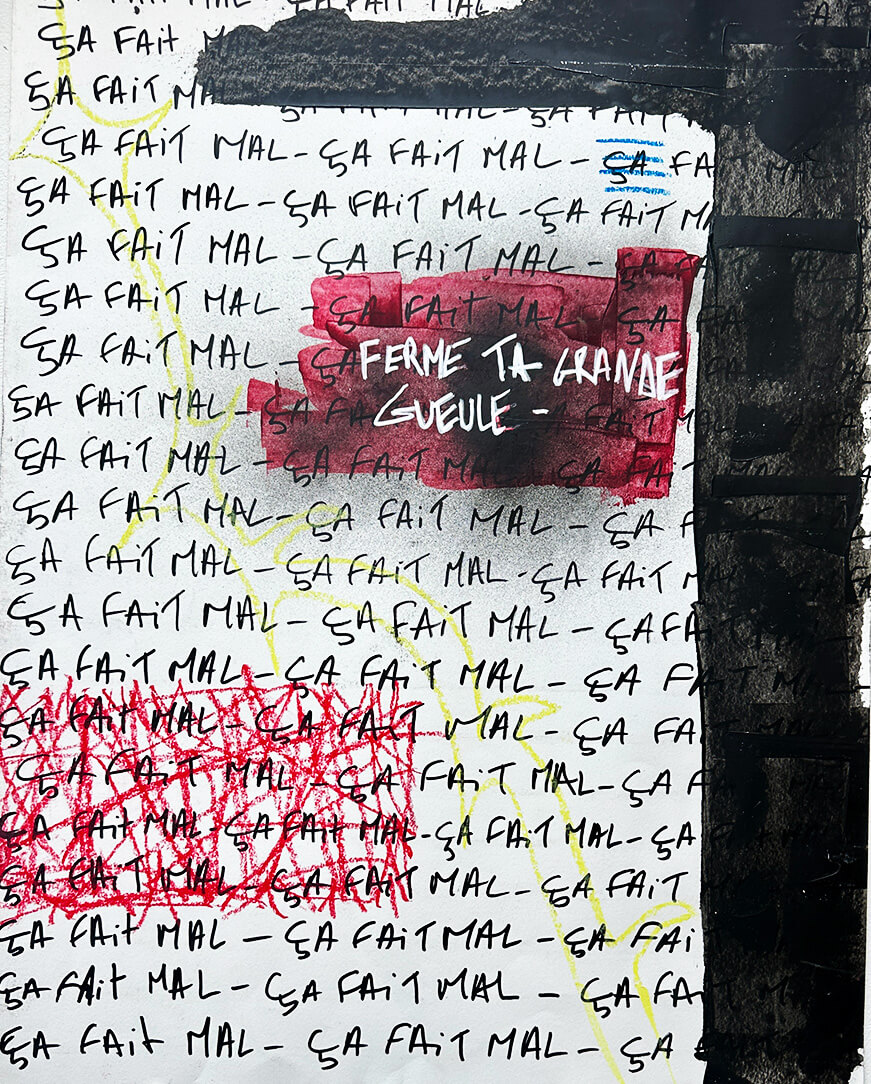 ÇA FAit
ÇA FAiT
ÇA FAiT MAL - ÇA FAiT MAL - ÇA
ÇA FAiT MAL - ÇA FAiT MAL - ÇA FAiT
ÇA FAiT MAL - ÇA FAiT MAL - ÇA
ÇA FAiT MAL - ÇA FAiT MAL - ÇA
ÇA FAiT MAL - ÇA
FERME TA GRANDE
GUEULE -
ÇA FAiT MAL - ÇA
ÇA FAiT MAL - ÇA FAiT MAL - ÇA FAiT
ÇA FAiT MAL - ÇA FAiT MAL - ÇA
ÇA FAiT MAL - ÇA FAiT MAL - ÇA FAiT
ÇA FAiT MAL - ÇA FAiT MAL - ÇA
ÇA FAiT MAL - ÇA FAiT MAL - ÇA
ÇA FAit MAL - ÇA FAiT MAL - ÇA
ÇA FAiT MAL - ÇA FAiT MAL - ÇA
ÇA FAit MAL - ÇA FAit MAL - ÇA FAiT MAL - ÇA
ÇA FAiT MAL - ÇA FAiT MAL - ÇA FAiT
ÇA FAit MAL - ÇA FAiT MAL - ÇA
ÇA FAit MAL - ÇA FAiT MAL - ÇA
ÇA FAit MAL - ÇA FAiT MAL - ÇA